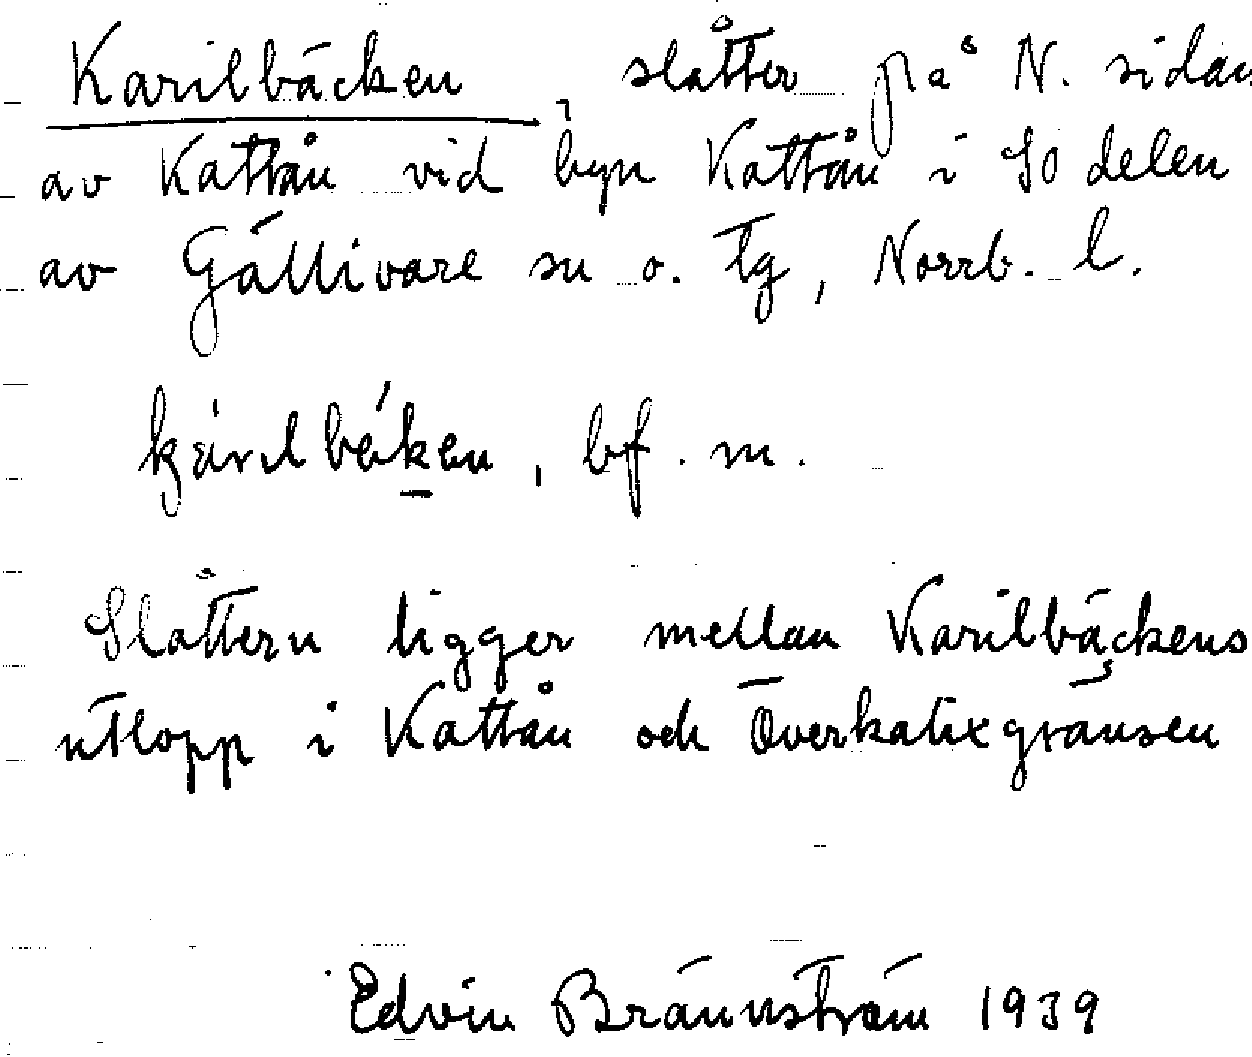 Karilbäcken, slåtter på N. sidan
av Kattån vid byn Kattån i SO delen
av Gällivare sn o. tg, Norrb. l.
bf. m.
Slåttern ligger mellan Karilbäckens
utlopp i Kattån och Överkalixgränsen
Edvin Brännström 1939